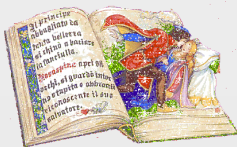 Il principe
abbagliato da
tanta bellezza
si chinò a baciare
la fanciulla.
Rosaspina aprì gli
occhi, si guardò intorno
stupita e
riconoscente il suo
salvatore.